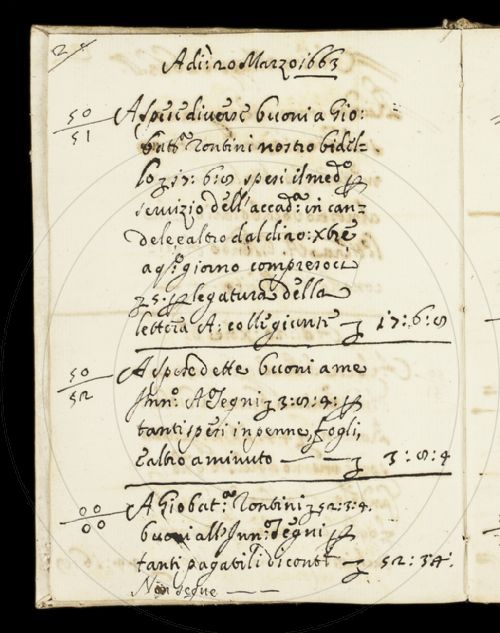 2
Adi: 20 Marzo 1663
50
51
A spese diverse buoni a Gio:
batt.a Rontini nostro bidel=
lo 17: 6: 8 spesi il med.o p
servizio dell'accad.a in can=
dele e altro dal di 20: xbre
a q.o giorno compresoci
5. p legatura della
lettera A: 17: 6: 8
50
52
A spese dette buoni a me
Inn.o Segni 3: 8: 4: p
tanti spesi in penne, fogli,
e altro a minuto — — 3: 8: 4
00
00
A Giobat.a Rontini 52: 3: 4.
buoni all' Inn.o Segni p
tanti pagabili di cont.i 52: 3 4:
Non segue — —